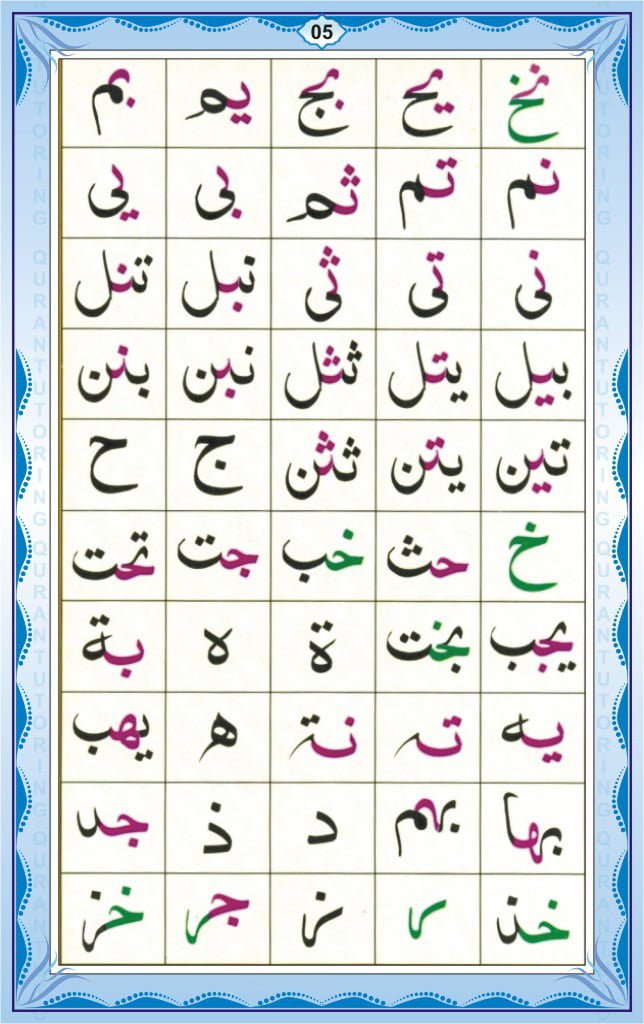 05
نخ يح بج يم بم
نم تم ثم بى يى
نى تى ثى نبل تنل
بيل يتل ثثل نبن بنن
تين يتن ثثن ج ح
خ حث خب جت تحت
يجب بخت ة ه بة
يه ته نة ه يهب
بها بهم د ذ جد
خذ ر ز جر خز
QURANTUTORING QURANTUTORING QURAN
QURANTUTORING QURANTUTORING QURAN